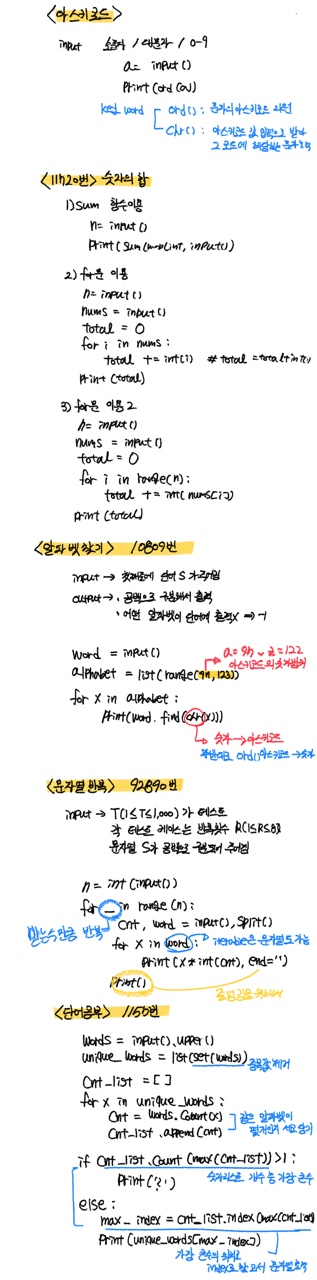 <아스키코드>
input 소문자 / 대문자 / 0-9
a = input()
print(ord(a))
key word ord() : 문자의 아스키코드 리턴
chr() : 아스키코드 값 입력으로 받아
그 코드에 해당하는 문자 출력
<11720번> 숫자의 합
1) sum 함수이용
n = input()
print(sum(map(int, input()))
2) for문 이용
n = input()
nums = input()
total = 0
for i in nums:
total += int(i) # total = total + int(i)
print(total)
3) for문 이용 2
n = input()
nums = input()
total = 0
for i in range(n):
total += int(nums[i])
print(total)
<알파벳찾기> 10809번
input → 첫째줄에 단어 S 가 주어짐
output → · 공백으로 구분해서 출력
· 어떤 알파벳이 단어에 출력 X ⇒ -1
word = input()
alphabet = list(range(97,123))
a = 97 ~ z = 122
아스키코드의 숫자범위
for x in alphabet :
print(word.find(chr(x)))
숫자 → 아스키코드
반대로 ord() 아스키코드 → 숫자
<문자열 반복> 92890번
input → T(1≤T≤1,000) 가 테스트
각 테스트 케이스는 반복횟수 R(1≤R≤8)
문자열 S가 공백으로 구분되어 주어짐
n = int(input())
for _ in range(n):
cnt, word = input().split()
받는 수만큼 반복
for x in word: iterable은 문자열도 가능
print(x * int(cnt), end='')
print()
<단어공부> 1157번
words = input().upper()
unique_words = list(set(words)) 중복값 제거
cnt_list = []
for x in unique_words :
cnt = words.count(x)
cnt_list.append(cnt)
같은 알파벳이
몇개인지 세고 담기
if cnt_list.count(max(cnt_list)) > 1 :
숫자리스트 개수 중 가장 큰수
print('?')
else :
max_index = cnt_list.index(max(cnt_list))
print(unique_words[max_index])
가장 큰수의 위치
index로 찾고서 문자열 출력